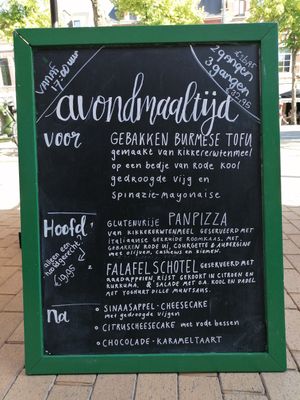 VANAF
17.00 uur
2 gangen
3 gangen
avondmaaltijd
voor
GEBAKKEN BURMESE TOFU
gemaakt van kikkererwtenmeel
op een bedje van rode kool
gedroogde vijg en
spinazie-mayonaise
Hoofd
alleen een
hoofdgerecht?
GLUTENVRIJE PANPIZZA
van KIKKERERWTENMEEL GESERVEERD MET
ITALIAANSE GEKRUIDE ROOMKAAS, MET
GEBAKEN RODE UI, COURGETTE & AUBERGINE
MET OLIJVEN, CASHEWS EN BIEMEN.
FALAFELSCHOTEL GESERVEERD MET
RAADAPPELEN, RIJST GEKOOKT IN CITROEN EN
KURKUMA. & SALADE MET O.A. KOOL EN DADEL
MET YOGHURT DILLE MUNTSAUS.
Na
• SINAASAPPEL-CHEESECAKE
met gedroogde vijgen
• CITRUSCHEESECAKE met rode bessen
• CHOCOLADE-KARAMELTAART